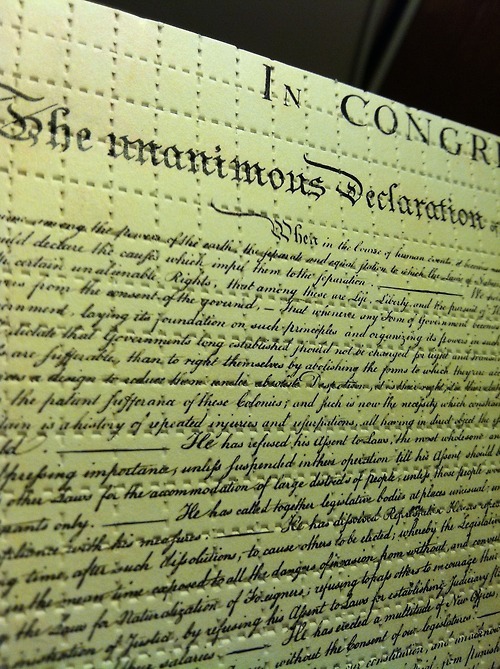 IN CONGR
The unanimous Declaration
When in the Course of human events, it
among the powers of the earth, the separate and equal station to which the Laws of
declare the causes which impel them to the separation.
certain unalienable Rights, that among these are Life, Liberty, and the pursuit of
from the consent of the governed, — That whenever any Form of Government becomes
laying its foundation on such principles and organizing its powers in such
dictate that Governments long established should not be changed for light and
are sufferable, than to right themselves by abolishing the forms to which they are
a design to reduce them under absolute Despotism, it is their right, it is their
the patient sufferance of these Colonies; and such is now the necessity which
is a history of repeated injuries and usurpations, all having in direct object the
He has refused his Assent to Laws, the most wholesome
pressing importance, unless suspended in their operation till his Assent should
other Laws for the accommodation of large districts of people, unless those people
only. He has called together legislative bodies at places unusual,
with his measures. He has dissolved
time, after such dissolutions, to cause others to be elected; whereby the Legislative
the mean time exposed to all the dangers of invasion from without, and
the Laws for Naturalization of Foreigners; refusing to pass others to encourage
of Justice, by refusing his Assent to Laws for establishing Judiciary
salaries. He has erected a multitude of New Offices,
without the Consent of our legislatures.
constitution, and